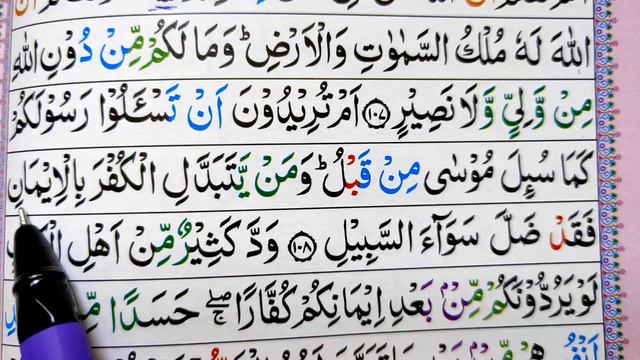 اللّٰهَ لَهٗ مُلْكُ السَّمٰوٰتِ وَالْاَرْضِ ؕ وَمَا لَكُمْ مِّنْ دُوْنِ اللّٰهِ
مِنْ وَّلِيٍّ وَّلَا نَصِيْرٍ ۝۱۰۷ اَمْ تُرِيْدُوْنَ اَنْ تَسْـَٔلُوْا رَسُوْلَكُمْ
كَمَا سُىِٕلَ مُوْسٰى مِنْ قَبْلُ ؕ وَمَنْ يَّتَبَدَّلِ الْكُفْرَ بِالْاِيْمَانِ
فَقَدْ ضَلَّ سَوَآءَ السَّبِيْلِ ۝۱۰۸ وَدَّ كَثِيْرٌ مِّنْ اَهْلِ
لَوْ يَرُدُّوْنَكُمْ مِّنْۢ بَعْدِ اِيْمَانِكُمْ كُفَّارًا ۖۚ حَسَدًا